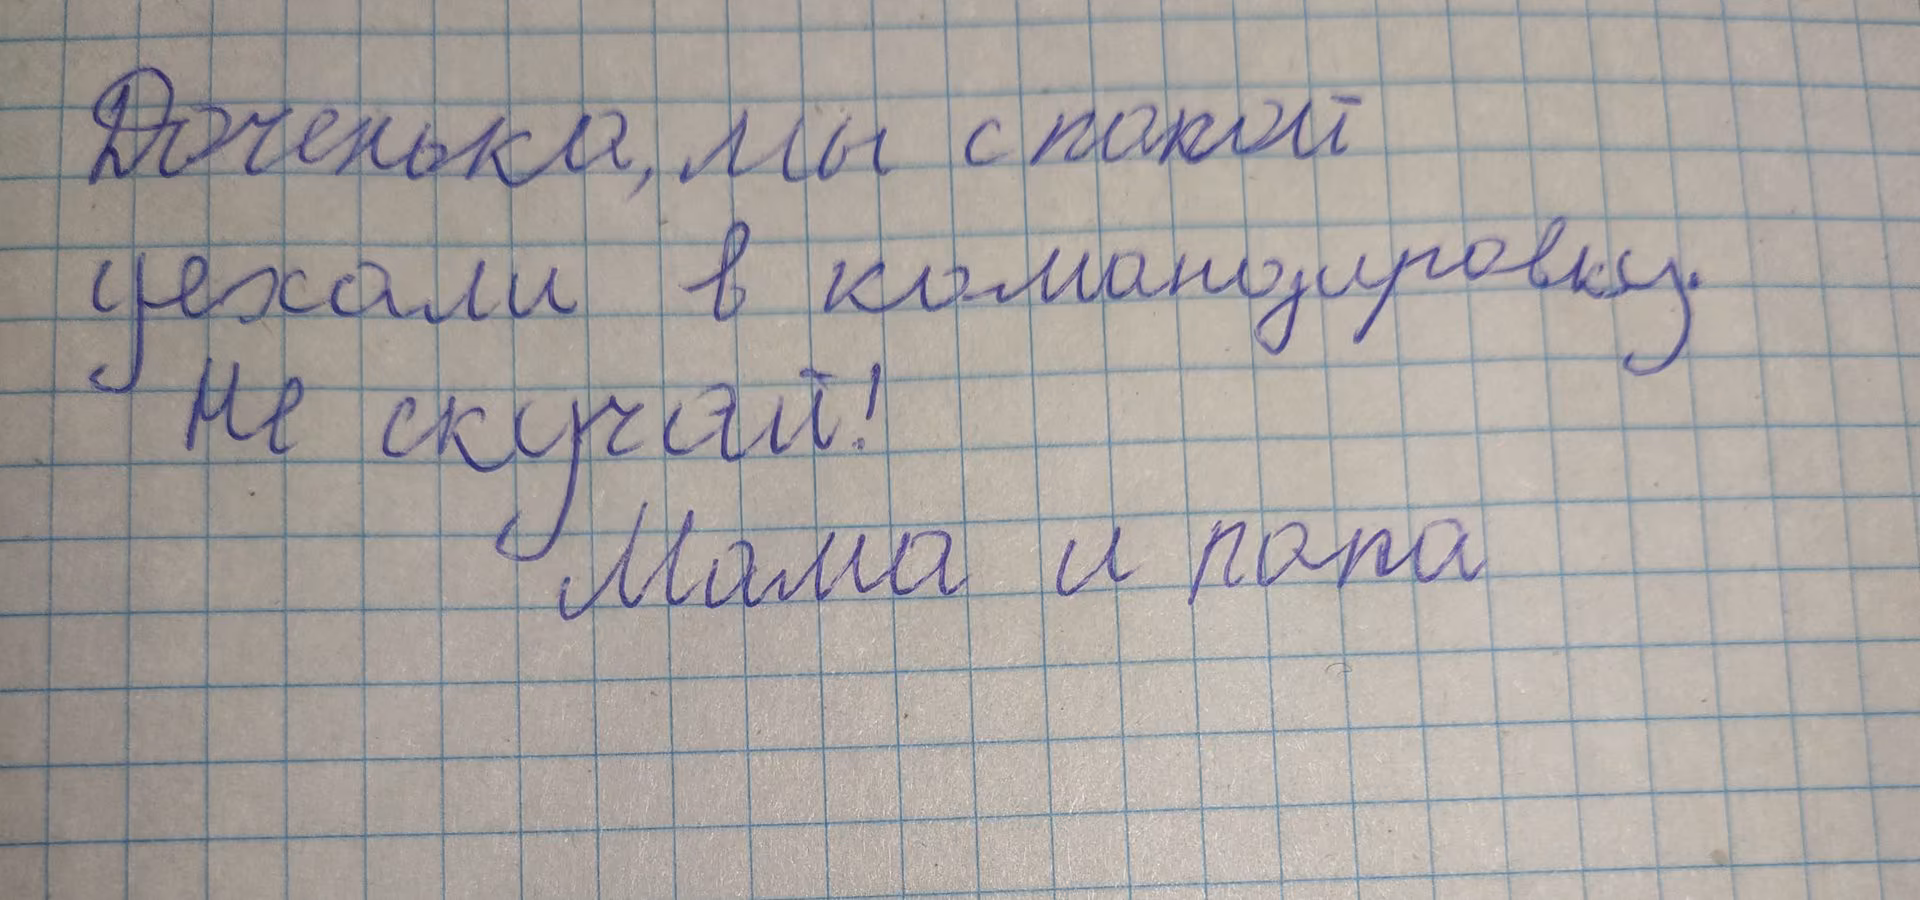 Доченька, мы с папой
уехали в командировку.
Не скучай!
Мама и папа